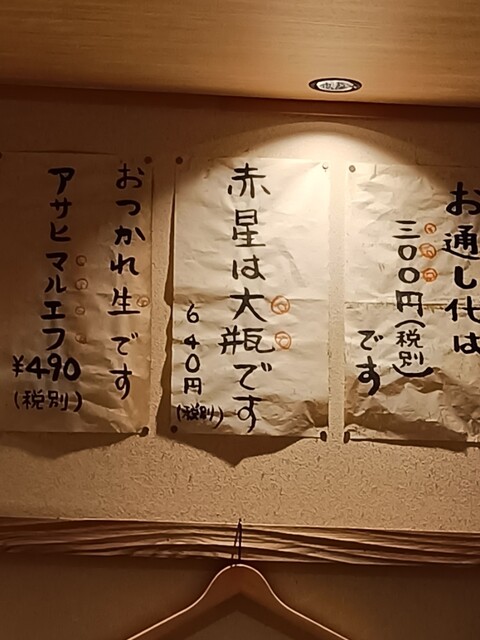 お通し代は
三〇〇円(税別)
です
赤星は大瓶です
640円(税別)
おつかれ生です
アサヒマルエフ
¥490
(税別)